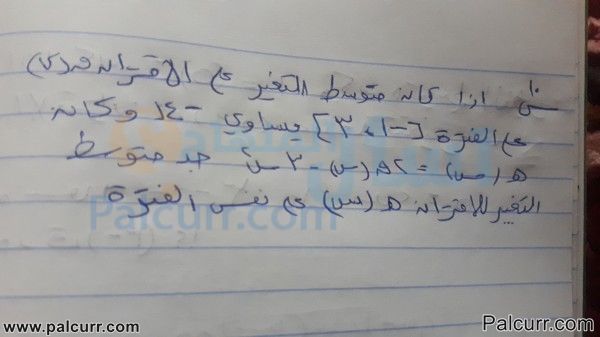 اذا كان متوسط التغير في الاقتران
في الفترة [-١ ، ٣] يساوي وكان
هـ(س) = جد متوسط
التغير للاقتران هـ(س) في نفس الفترة
Palcurr.com
www.palcurr.com
Palcurr.com